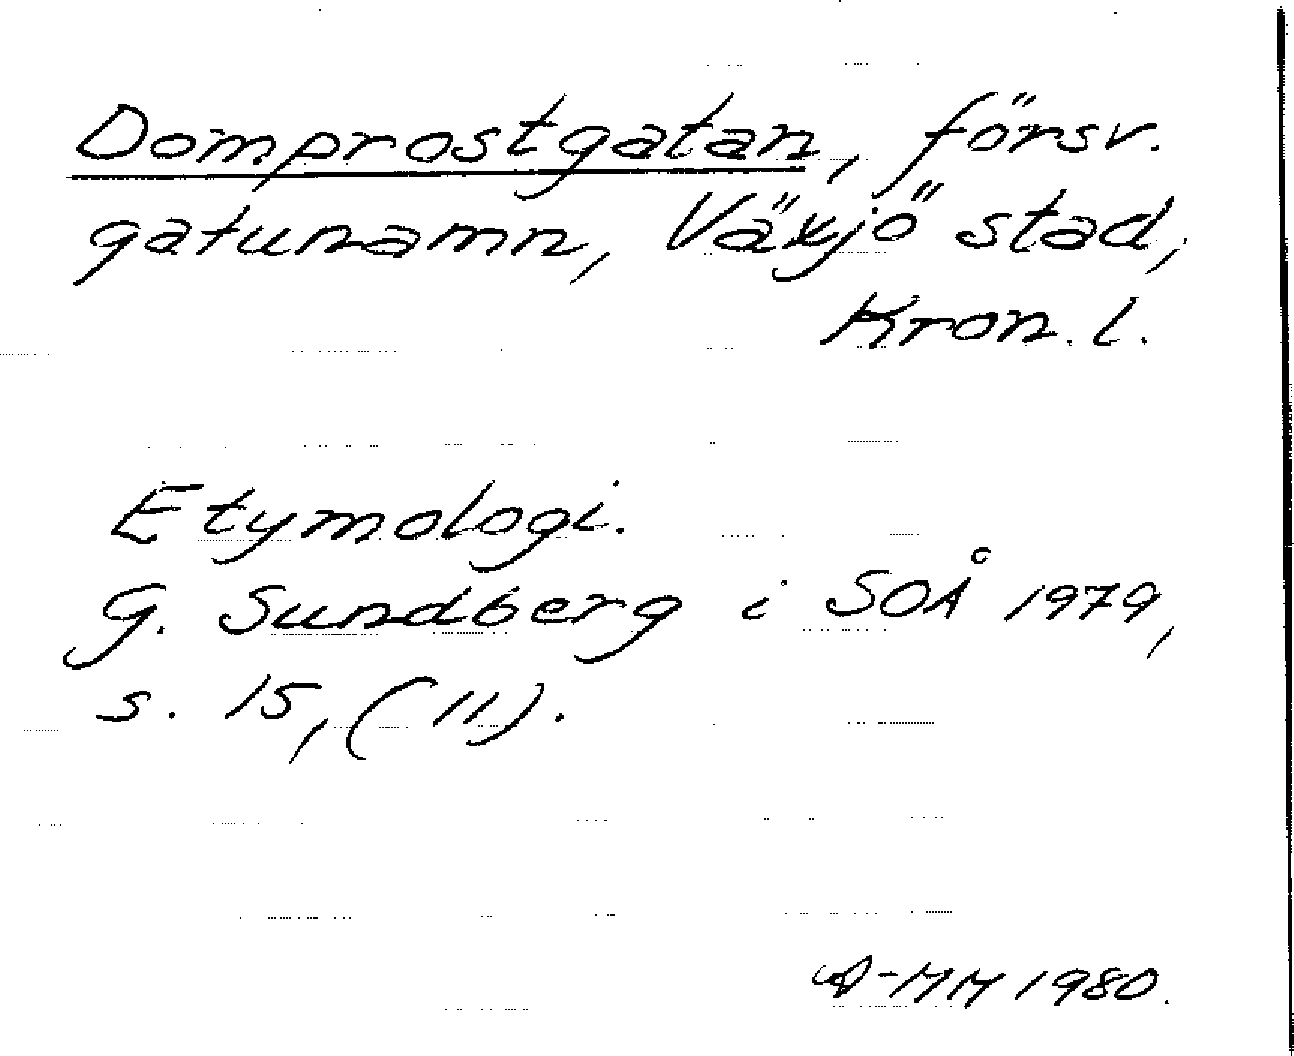 Domprostgatan, försv.
gatunamn, Växjö stad,
Kron. l.
Etymologi.
G. Sundberg i SOÅ 1979,
s. 15, (11).
A-MM 1980.